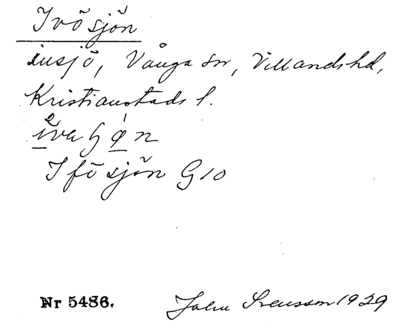 Ivösjön
insjö, Vånga sn, Villands hd,
Kristianstads l.
Ifösjön G10
Nr 5486. John Svensson 1929